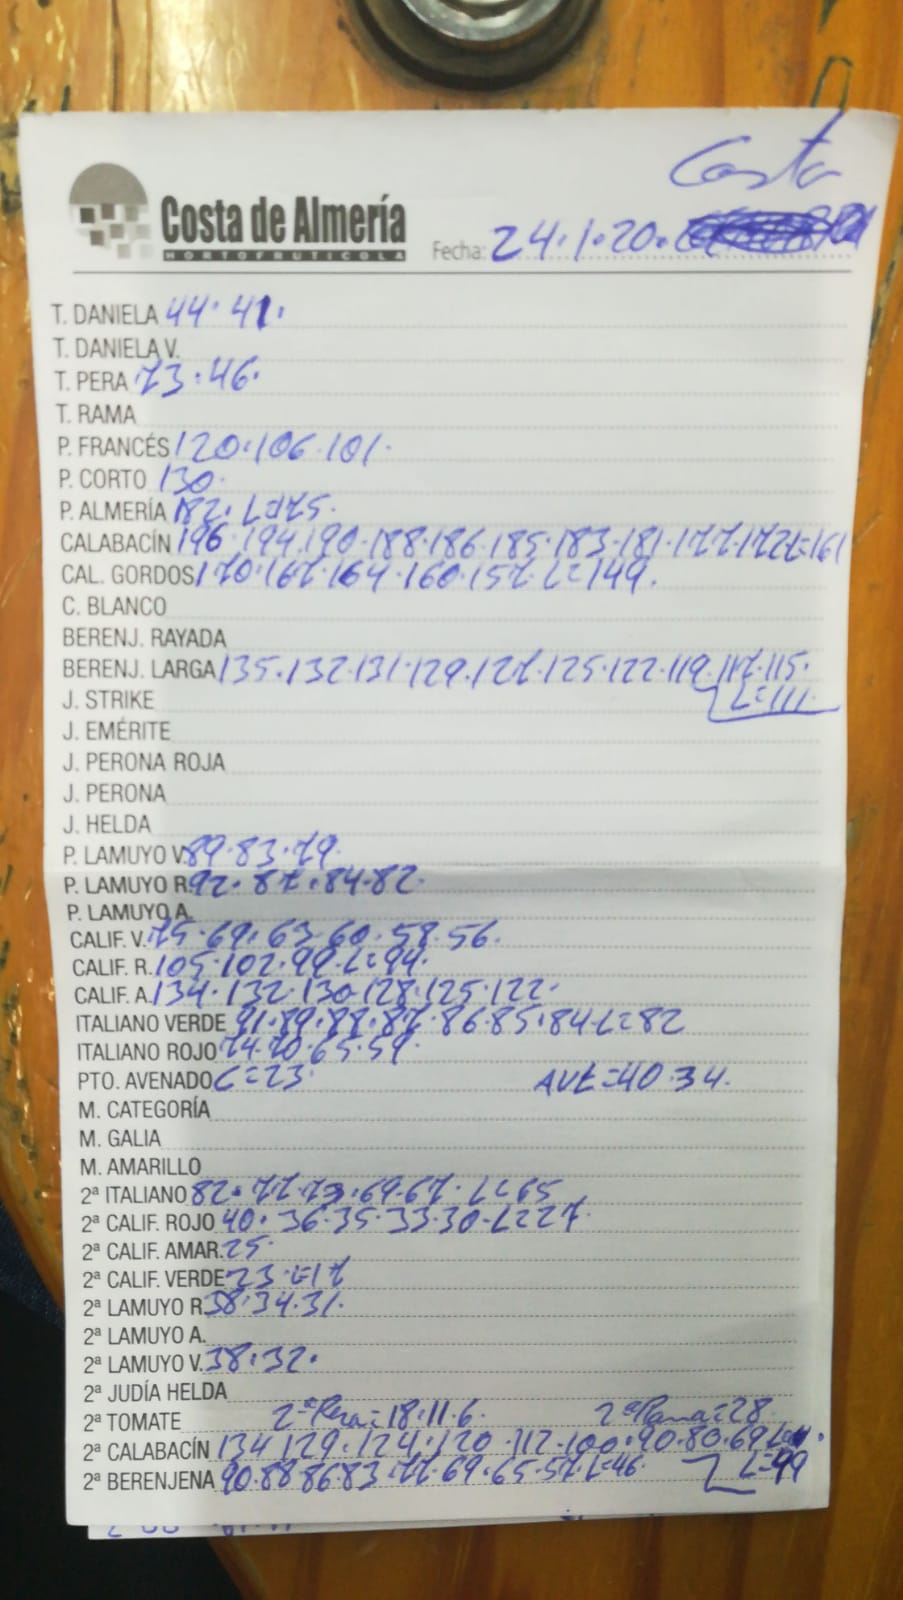 Costa
Costa de Almería
HORTOFRUTICOLA
Fecha: 24.1.20.
T. DANIELA 44.41.
T. DANIELA V.
T. PERA 73.46.
T. RAMA
P. FRANCÉS 120.106.101.
P. CORTO 130.
P. ALMERÍA 182. L=175.
CALABACÍN 196.194.190.188.186.185.183.181.177.172L=161
CAL. GORDOS 170.167.164.160.157.L=149.
C. BLANCO
BERENJ. RAYADA
BERENJ. LARGA 135.132.131.129.127.125.122.119.117.115.
L=111.
J. STRIKE
J. EMÉRITE
J. PERONA ROJA
J. PERONA
J. HELDA
P. LAMUYO V. 89.83.79.
P. LAMUYO R. 92.87.84.82.
P. LAMUYO A.
CALIF. V. 75.69.63.60.58.56.
CALIF. R. 105.102.99.L=94.
CALIF. A. 134.132.130.128.125.122.
ITALIANO VERDE 91.89.88.87.86.85.84.L=82
ITALIANO ROJO 74.70.65.59.
PTO. AVENADO L=23. AVE=40.34.
M. CATEGORÍA
M. GALIA
M. AMARILLO
2ª ITALIANO 82.77.73.69.67.L=65
2ª CALIF. ROJO 40.36.35.33.30.L=27.
2ª CALIF. AMAR. 25
2ª CALIF. VERDE 23.L=17
2ª LAMUYO R. 38.34.31.
2ª LAMUYO A.
2ª LAMUYO V. 38.32.
2ª JUDÍA HELDA
2ª TOMATE 2ª Pera=18.11.6. 2ª Rama=28.
2ª CALABACÍN 134.129.124.120.112.100.90.80.69
2ª BERENJENA 90.88.86.83.77.69.65.57.L=46 L=99